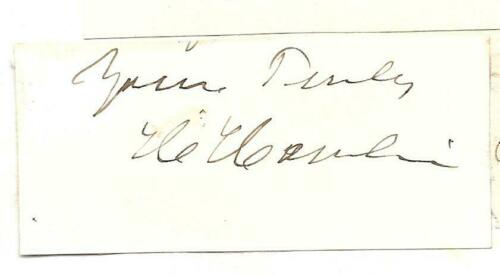 Yours Truly
H Hamlin